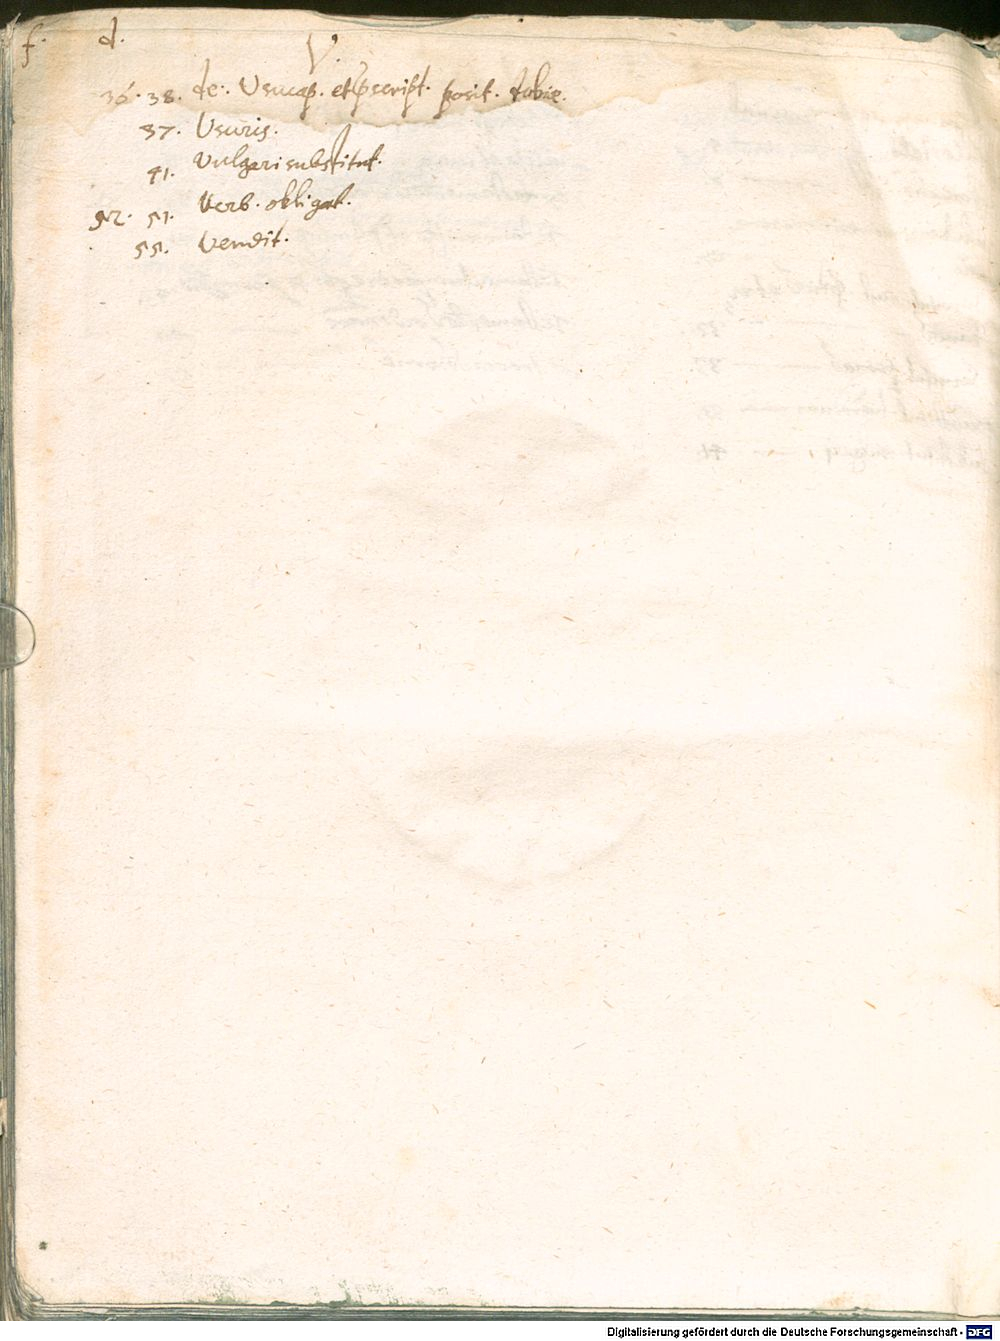 f. d. V.
36. 38. de: Usucap. et pscript. posit. tobie.
37. Usuris.
41. Vulgari substitut.
52. 51. Verb. obligat.
55. Vendit.
Digitalisierung gefördert durch die Deutsche Forschungsgemeinschaft - DFG